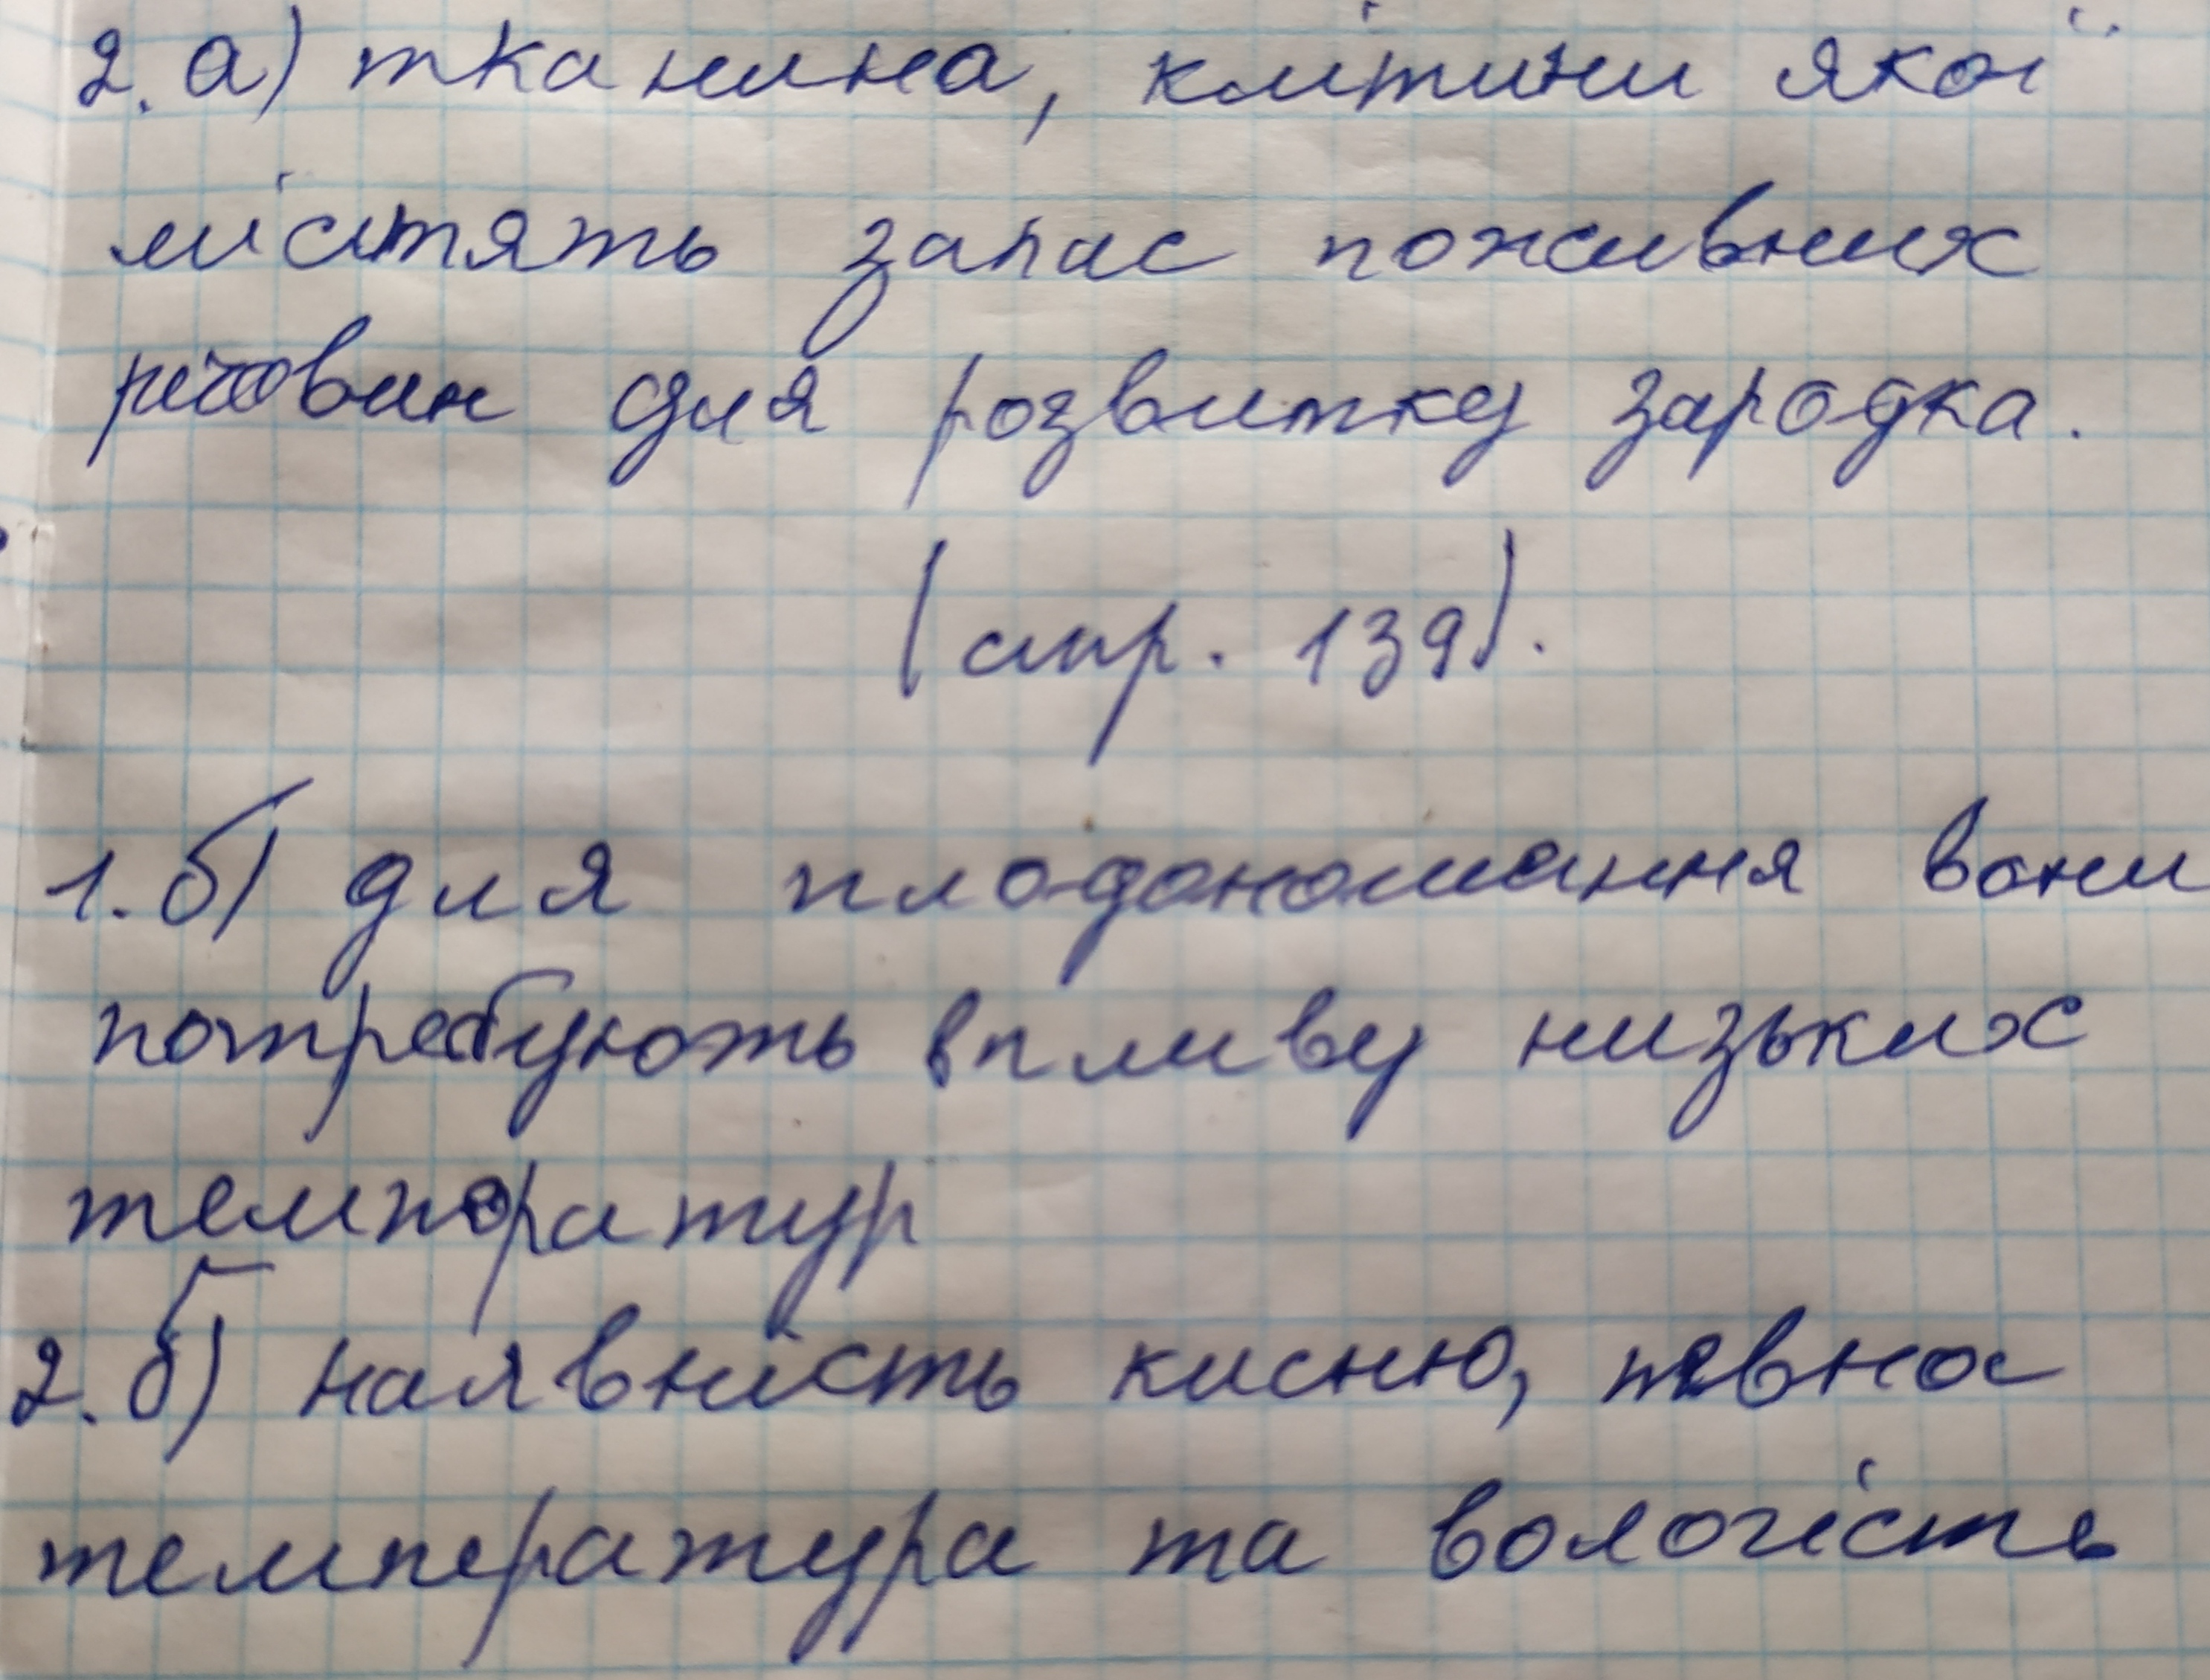 2. а) тканина, клітини якої
містять запас поживних
речовин для розвитку зародка.
(стр. 139).
1. б) для плодоношання вони
потребують впливу низьких
температур
2. б) наявність кисню, певна
температура та вологість